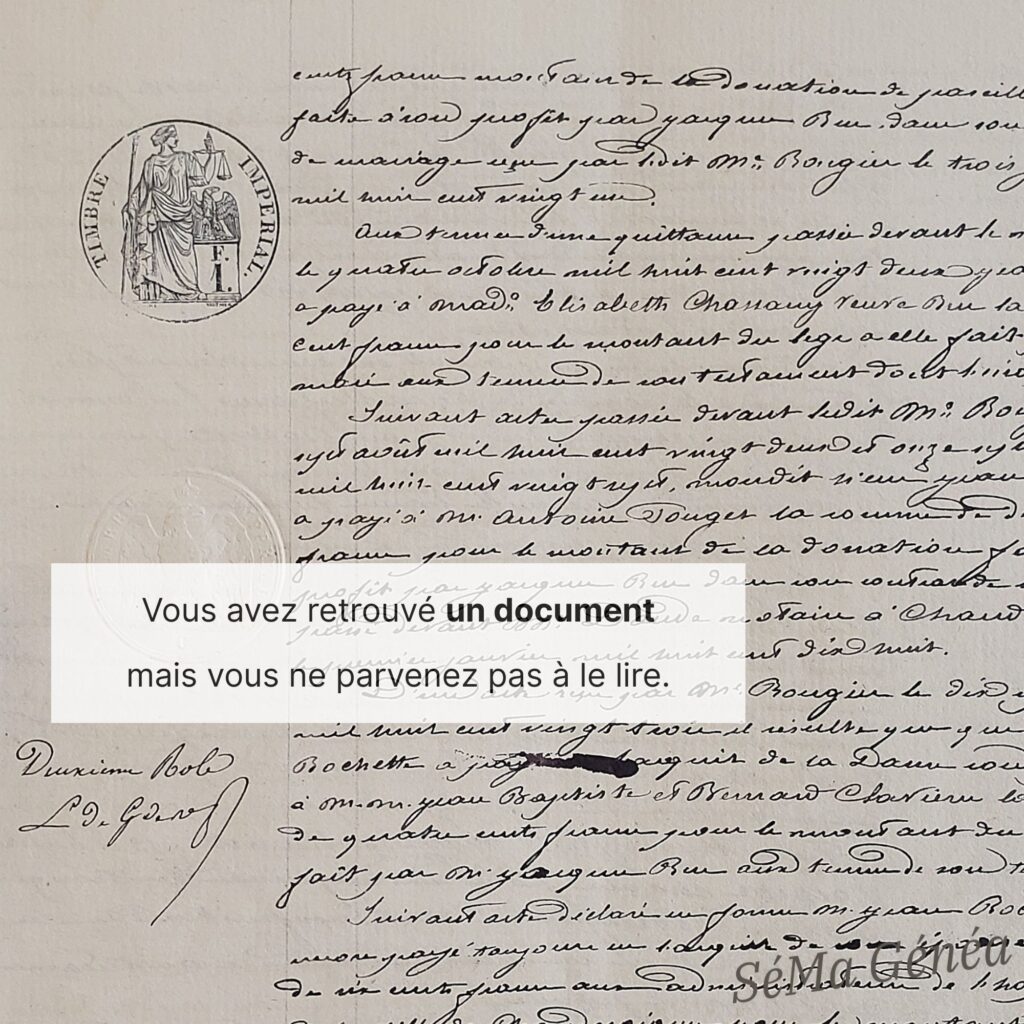 TIMBRE IMPERIAL.
F.
1.
cents francs montant de la donation de pareille
faite à son profit par Jacques Bru dans son
de mariage reçu par ledit Me. Bougier le trois
mil huit cent vingt un.
Aux termes d'une quittance passée devant le
le quatre octobre mil huit cent vingt deux
a payé à Made. Elisabeth Chassang veuve Bru la
cent francs pour le montant du legs à elle fait
mari aux termes de son testament dont
Suivant actes passés devant ledit Me.
sept août mil huit cent vingt deux et onze
mil huit cent vingt sept, mondit sieur Jean
a payé à M. Antoine Pouget la somme de
francs pour le montant de la donation
profit par Jacques Bru dans son contrat de
Vous avez retrouvé un document
mais vous ne parvenez pas à le lire.
notaire à Chaud
le premier janvier mil huit cent dix huit.
D'un acte reçu par Me. Bougier le dix
mil huit cent vingt trois il résulte que
Deuxième Role
Rochette a payé l'acquit de la Dame
à M.M. Jean Baptiste et Bernard Clavière
de quatre cents francs pour le montant du
fait par M. Jacques Bru aux termes de son
Suivant acte déclaré en forme M. Jean
encore payé toujours en l'acquit de
de six cents francs aux administrateurs de
SéMa Généa
pour le montant